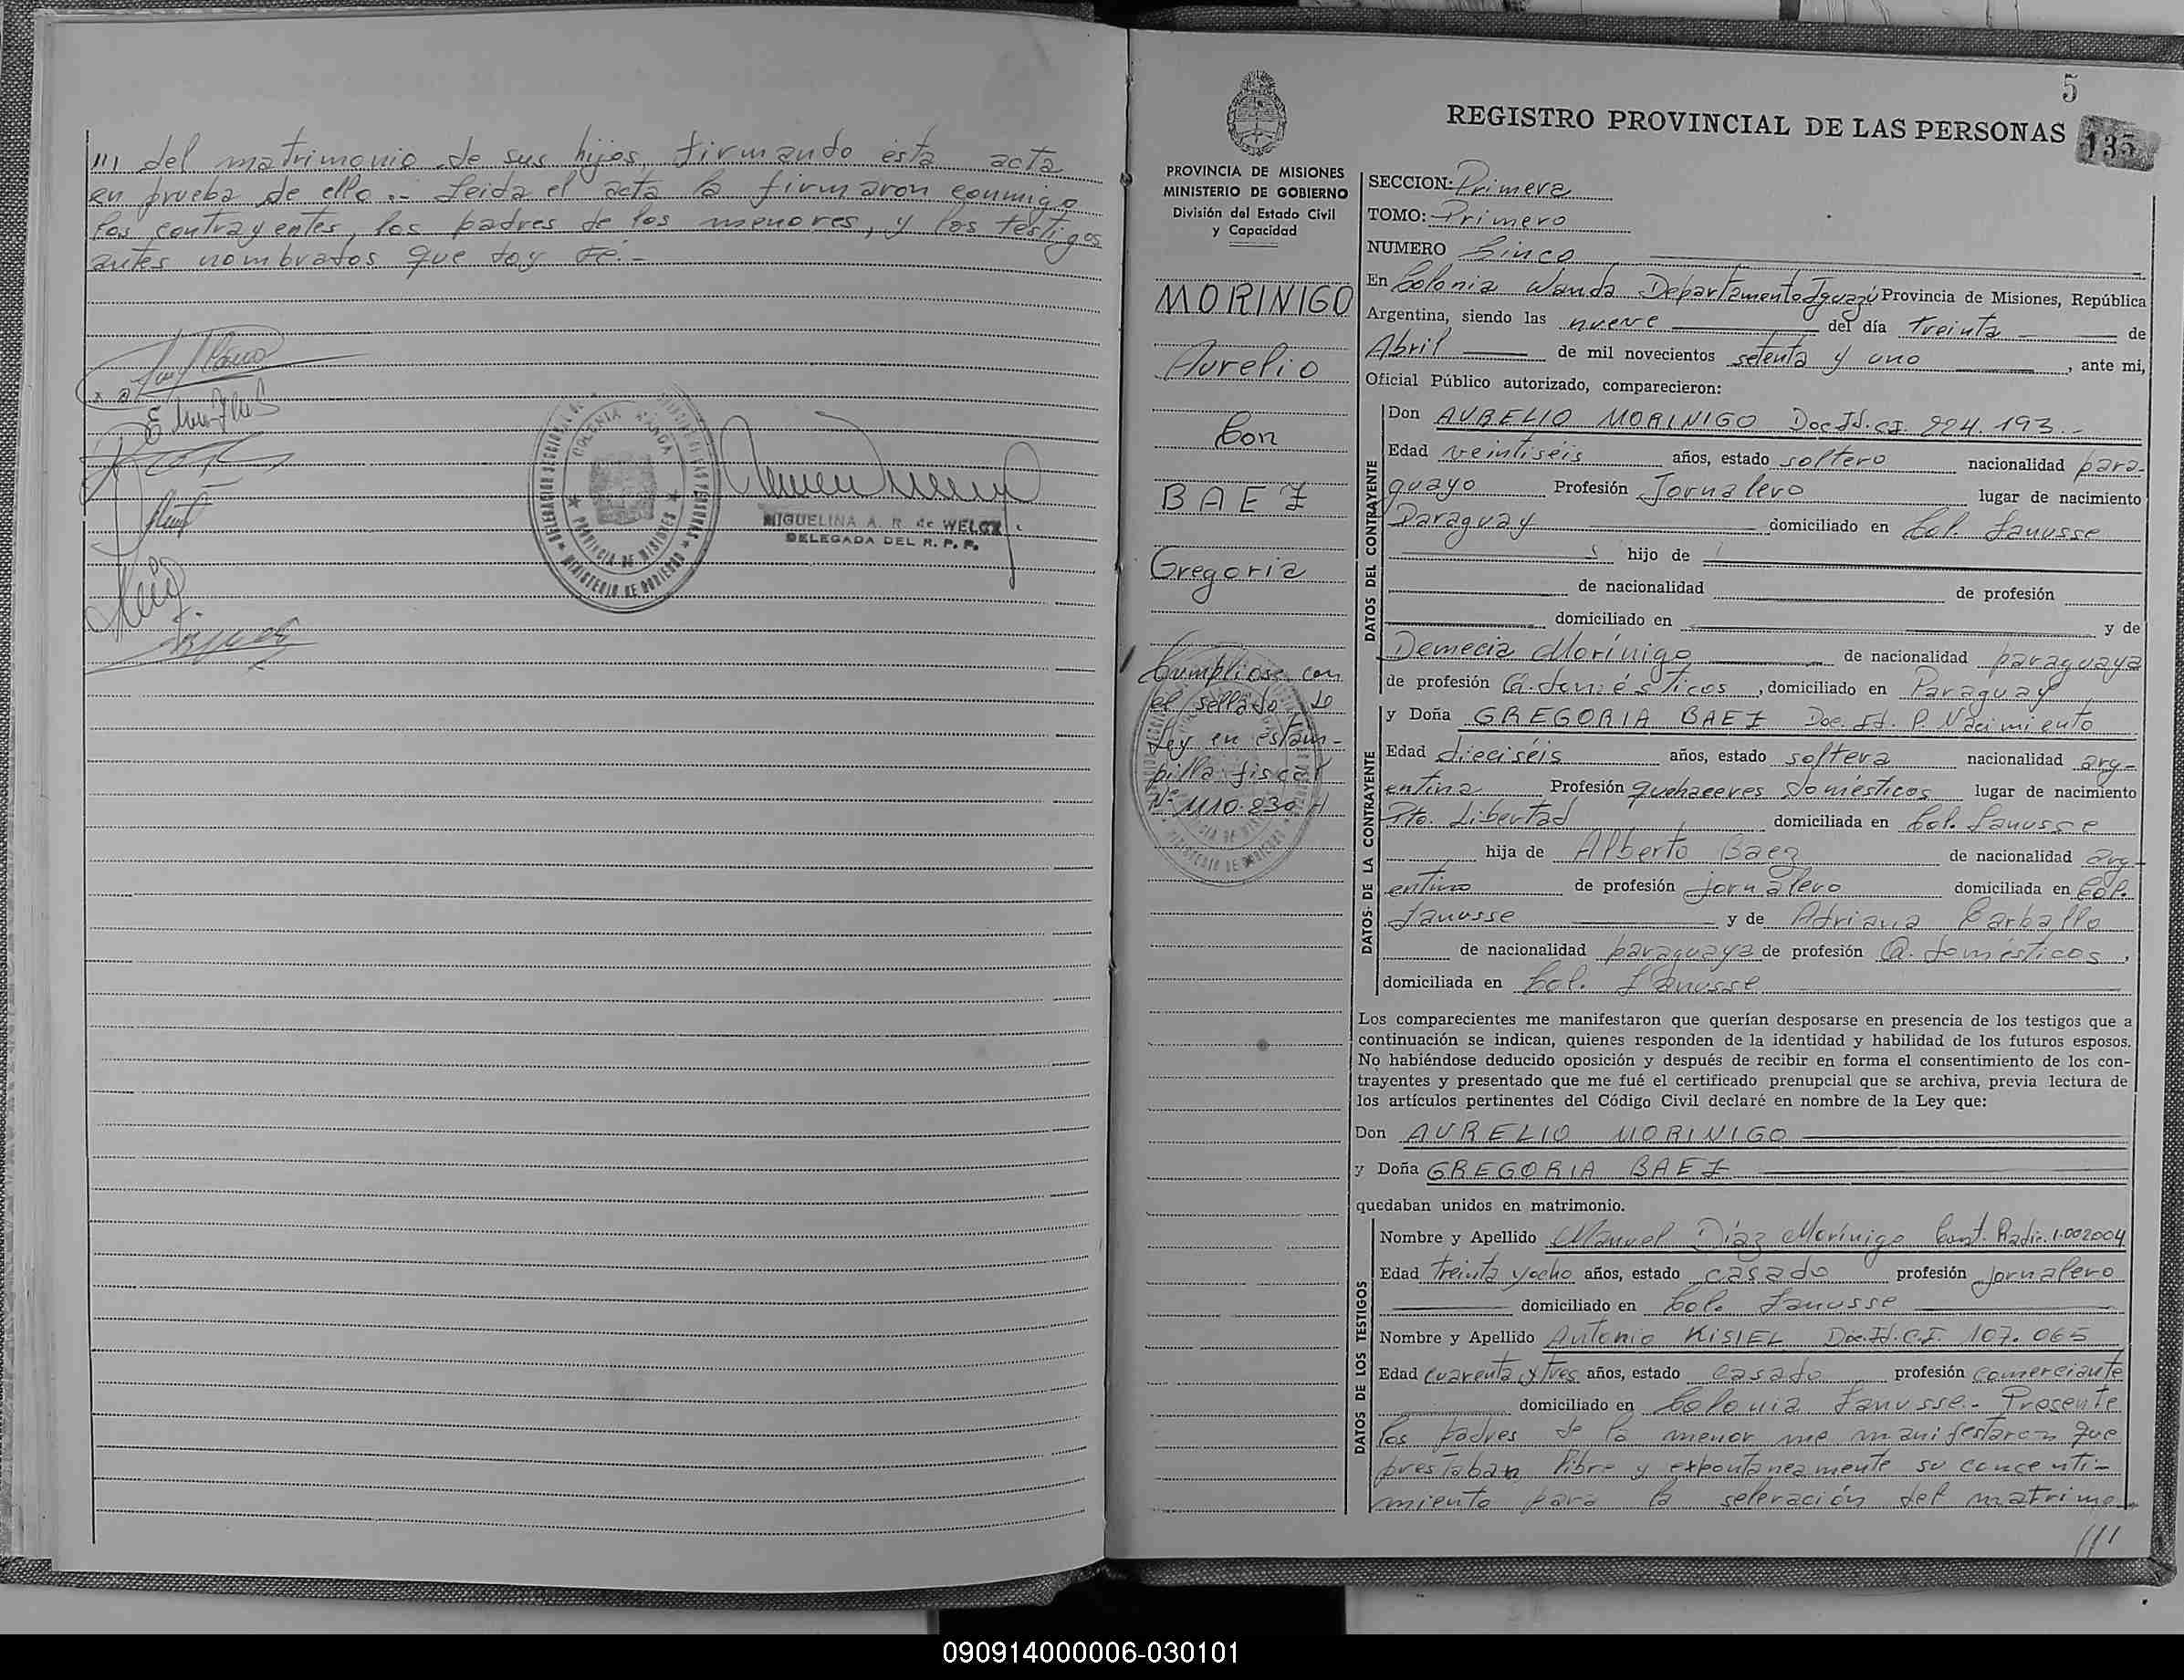 /// del matrimonio de sus hijos, firmando esta acta
en prueba de ello.- Leida el acta la firmaron conmigo
los contrayentes, los padres de los menores, y los testigos
antes nombrados que doy fé.-
COLONIA WANDA
PROVINCIA DE MISIONES
MINISTERIO DE GOBIERNO
MIGUELINA A. R. de WELCZ
DELEGADA DEL R. P. P.
5
REGISTRO PROVINCIAL DE LAS PERSONAS
135
PROVINCIA DE MISIONES
MINISTERIO DE GOBIERNO
División del Estado Civil
y Capacidad
MORINIGO
Aurelio
Con
BAEZ
Gregoria
Cumpliose con
el sellado de
Ley en estam-
pilla fiscal
Nº 1110.830 H
SECCION: Primera
TOMO: Primero
NUMERO Cinco
En Colonia Wanda Departamento Iguazú Provincia de Misiones, República
Argentina, siendo las nueve del día treinta de
Abril de mil novecientos setenta y uno, ante mi,
Oficial Público autorizado, comparecieron:
DATOS DEL CONTRAYENTE
Don AURELIO MORINIGO Doc Id. CI. 224.193.-
Edad veintiséis años, estado soltero nacionalidad para-
guayo Profesión Jornalero lugar de nacimiento
Paraguay domiciliado en Col. Lanusse
hijo de
de nacionalidad de profesión
domiciliado en y de
Demecia Morínigo de nacionalidad paraguaya
de profesión Q. domésticos, domiciliado en Paraguay
DATOS DE LA CONTRAYENTE
y Doña GREGORIA BAEZ Doc. Id. P. Nacimiento
Edad dieciséis años, estado soltera nacionalidad arg-
entina Profesión quehaceres domésticos lugar de nacimiento
Pto. Libertad domiciliada en Col. Lanusse
hija de Alberto Baez de nacionalidad arg-
entino de profesión jornalero domiciliada en Col.
Lanusse y de Adriana Carballo
de nacionalidad paraguaya de profesión Q. domésticos,
domiciliada en Col. Lanusse
Los comparecientes me manifestaron que querían desposarse en presencia de los testigos que a
continuación se indican, quienes responden de la identidad y habilidad de los futuros esposos.
No habiéndose deducido oposición y después de recibir en forma el consentimiento de los con-
trayentes y presentado que me fué el certificado prenupcial que se archiva, previa lectura de
los artículos pertinentes del Código Civil declaré en nombre de la Ley que:
Don AURELIO MORINIGO
y Doña GREGORIA BAEZ
quedaban unidos en matrimonio.
DATOS DE LOS TESTIGOS
Nombre y Apellido Manuel Díaz Morínigo Cert. Radic. 1.002004
Edad treinta y ocho años, estado casado profesión jornalero
domiciliado en Col. Lanusse
Nombre y Apellido Antonio KISIEL Doc. Id. C.I. 107.065
Edad cuarenta y tres años, estado casado profesión comerciante
domiciliado en Colonia Lanusse.- Presente
los padres de la menor me manifestaron que
prestaban libre y expontaneamente su concenti-
miento para la seleración del matrimo-
///
090914000006-030101